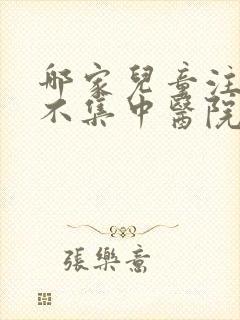 那家兒童注
不集中醫院
張樂意